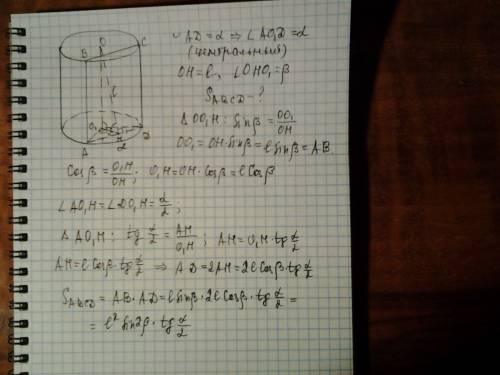 ∪AD = α ⇒ ∠AO₁D = α
(центральный)
OH = ℓ, ∠OHO₁ = β
S_ABCD - ?
Δ OO₁H: sinβ = OO₁/OH
OO₁ = OH · sinβ = ℓ sinβ = AB
O
B
C
ℓ
O₁
H
α
A
D
Cosβ = O₁H/OH; O₁H = OH · Cosβ = ℓ Cosβ
∠AO₁H = ∠DO₁H = α/2;
Δ AO₁H: tg α/2 = AH/O₁H; AH = O₁H · tg α/2
AH = ℓ Cosβ · tg α/2 ⇒ AD = 2AH = 2ℓ Cosβ · tg α/2
S_ABCD = AB · AD = ℓ sinβ · 2ℓ Cosβ · tg α/2 =
= ℓ² sin2β · tg α/2